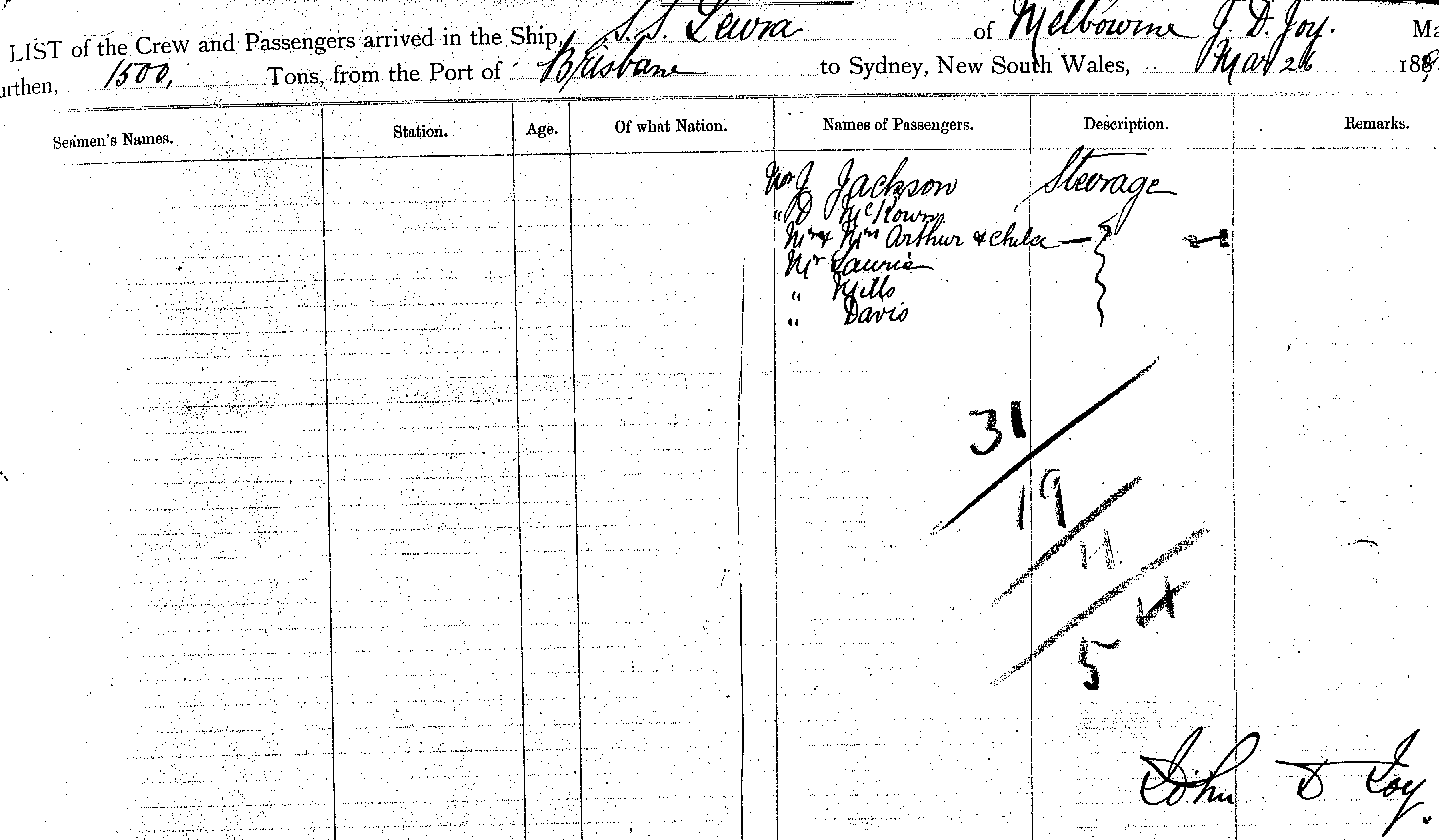 LIST of the Crew and Passengers arrived in the Ship, S.S. Leura of Melbourne J. D. Joy. Ma
urthen, 1500, Tons, from the Port of Brisbane to Sydney, New South Wales, Mar 26 188
Seamen's Names. Station. Age. Of what Nation. Names of Passengers. Description. Remarks.
J Jackson Steerage
" D McKown
Mr & Mrs Arthur & child
Mr Laurie
" Mills
" Davis
31
19
11
4
5
John D Joy.